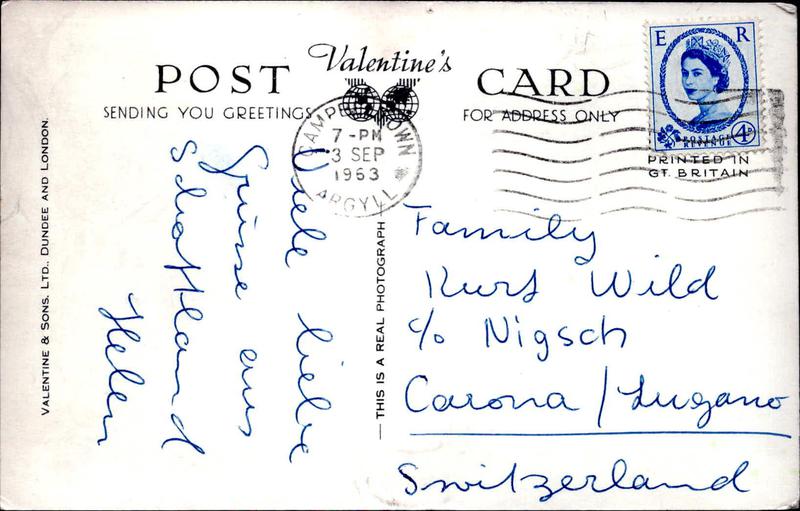 Valentine's
POST CARD
SENDING YOU GREETINGS
FOR ADDRESS ONLY
E R
POSTAGE REVENUE
4D
PRINTED IN
GT. BRITAIN
CAMPBELTOWN
7-PM
3 SEP
1963
ARGYLL
VALENTINE & SONS. LTD., DUNDEE AND LONDON.
THIS IS A REAL PHOTOGRAPH
Viele liebe
Grüsse aus
Schottland
Helen
Family
Kurt Wild
c/o Nigsch
Carona / Lugano
Switzerland